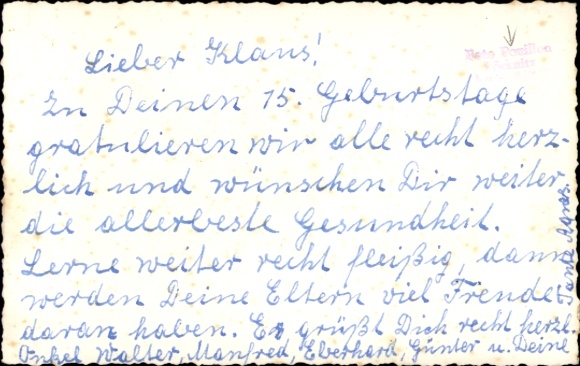 Lieber Klaus!
Zu Deinen 15. Geburtstage
gratulieren wir alle recht herz-
lich und wünschen Dir weiter
die allerbeste Gesundheit.
Lerne weiter recht fleißig, dann
werden Deine Eltern viel Freude
daran haben. Es grüßt Dich recht herzl.
Onkel Walter, Manfred, Eberhard, Günter u. Deine
Tante Agnes.